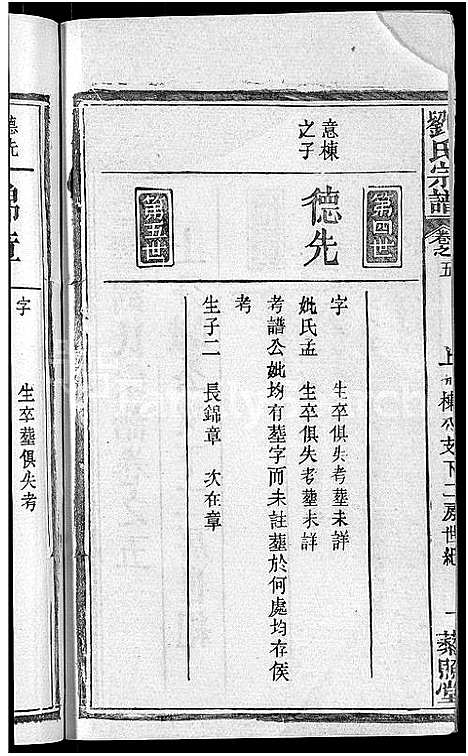 劉氏宗譜
卷之五
上
棟公支下二房世紀
一
藜照堂
第四世
意棟
之子
德先
字　生卒俱失考塟未詳
妣氏孟　生卒俱失考塟未詳
考譜公妣均有塟字而未註塟於何處均存俟
考
生子二　長錦章　次在章
第五世
德先
錦章
字　生卒塟俱失考